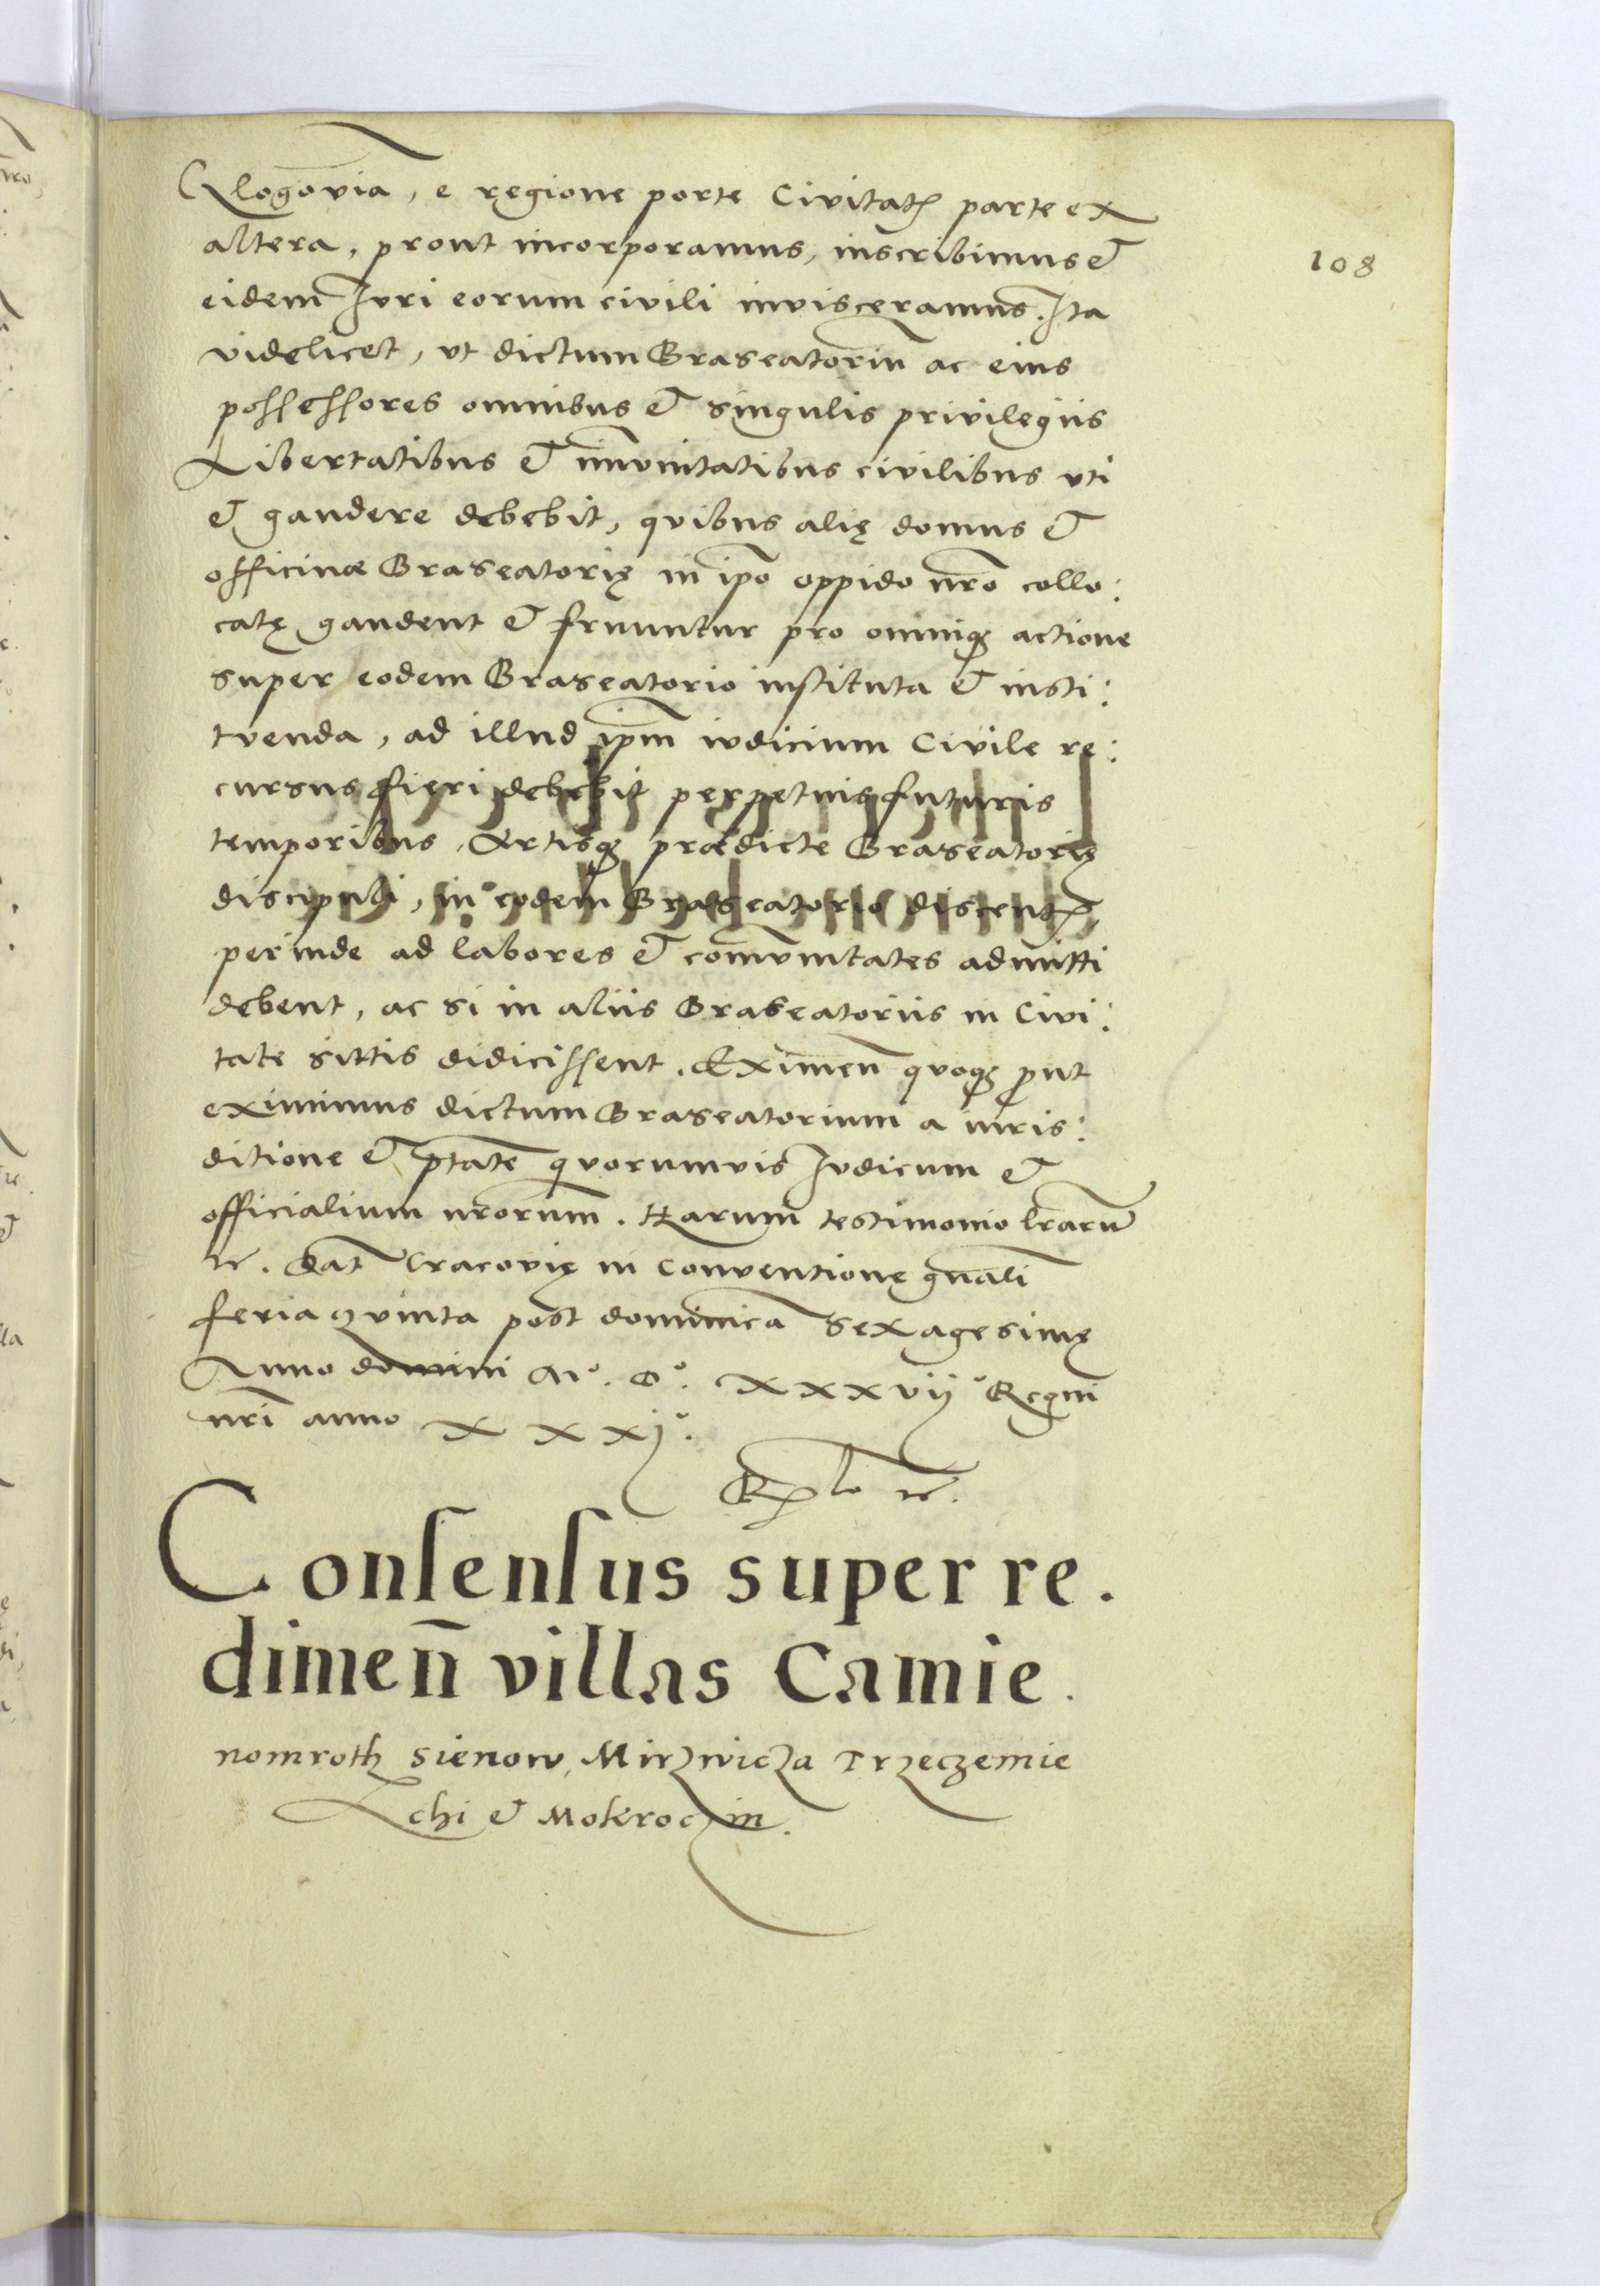 108
Glogovia, e regione porte Civitatꝭ parte ex
altera, prout incorporamus, inscribimus et
eidem Iuri eorum civili invisceramus. Ita
videlicet, vt dictum Braseatoriū ac eius
possessores omnibus et singulis privilegiis
Libertatibus et im̄vnitatibus civilibus vti
et gaudere debebit, quibus alię domus et
officinæ Braseatorię in ip̄o oppido nr̄o collo:
catę gaudent et fruuntur pro omniqꝫ actione
super eodem Braseatorio instituta et insti:
tuenda, ad illud ip̄m iudicium Civile re:
cursus fieri debebit perpetuis futuris
temporibus, Artisqꝫ prædicte Braseatorię
discipuli, in eodem Braseatorio discentꝭ,
perinde ad labores et com̄vnitates admitti
debent, ac si in aliis Braseatoriis in Civi:
tate sittis didicissent. Eximen̄ quoqꝫ ꝓut
eximimus dictum Braseatorium a iuris:
ditione et p̄tate quorumvis Iudicum et
officialium nr̄orum. Harum testimonio l̄rarū
etc. Dat̄ Cracovię in Conventione gn̄ali
feria quinta post dominicā Sexagesimę
Anno domini Mº. Dº. XXXVIIº Regni
nr̄i anno XXXIº.
Consensus super re.
dimen̄ villas Camie.
nomroth Sienow, Mirzwicza Trzeczemie
chi et Mokroczin.